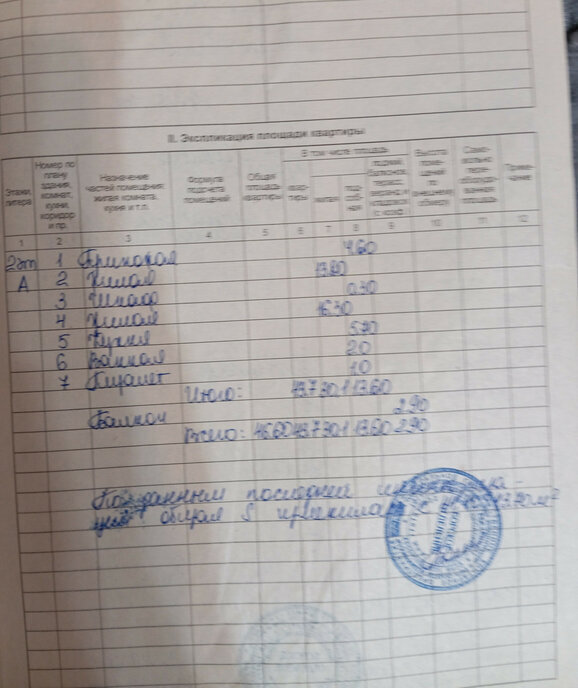 III. Экспликация площади квартиры
Этажи, литера
Номер по плану здания, комнат, кухни, коридор и пр.
Назначение частей помещения: жилая комната, кухня и т.п.
Формула подсчета помещений
Общая площадь квартиры
В том числе площадь
квартиры
жилая
подсобная
лоджий, балконов, террас, веранд и кладовок с коэф.
Высота помещений по внутреннему обмеру
Самовольно переоборудованная площадь
Примечание
1 2 3 4 5 6 7 8 9 10 11 12
2эт 1 Прихожая 4.60
А 2 Жилая 13.80
3 Шкаф 0.30
4 Жилая 16.30
5 Кухня 5.70
6 Ванная 2.0
7 Туалет 1.0
Итого: 43.7 30.1 13.60
Балкон 2.90
Всего: 46.60 43.7 30.1 13.60 2.90
По данным последней
общая S